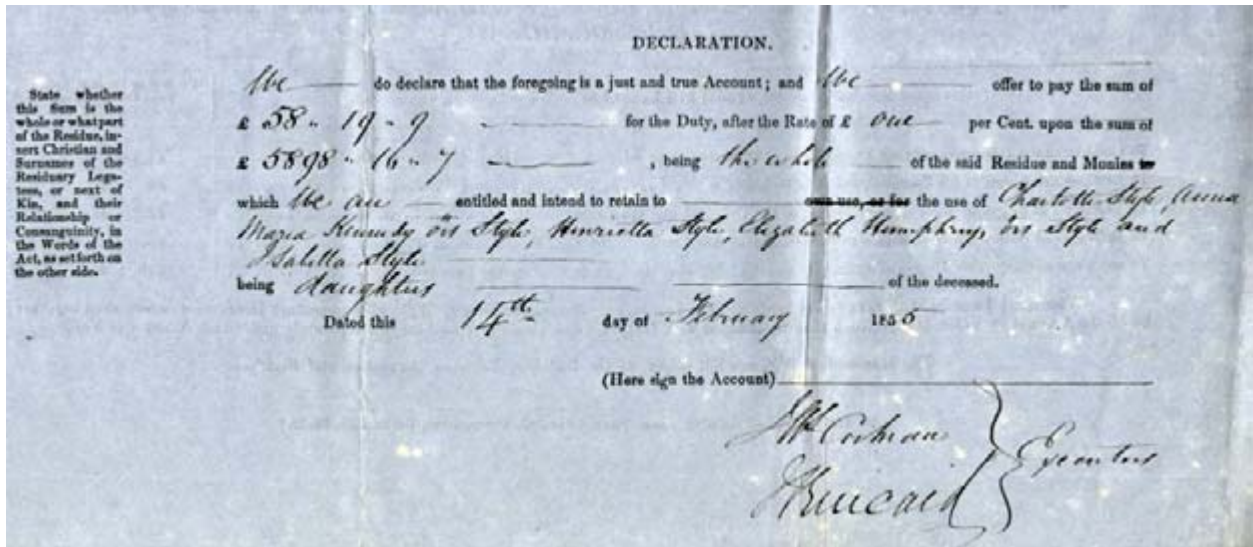 DECLARATION.
State whether
this Sum is the
whole or what part
of the Residue, in-
sert Christian and
Surnames of the
Residuary Lega-
tees, or next of
Kin, and their
Relationship or
Consanguinity, in
the Words of the
Act, as set forth on
the other side.
We do declare that the foregoing is a just and true Account; and We offer to pay the sum of
£ 58 " 19 " 9 for the Duty, after the Rate of £ one per Cent. upon the sum of
£ 5898 " 16 " 7 , being the whole of the said Residue and Monies to
which We are entitled and intend to retain to own use, or for the use of Charlotte Style, Anna
Maria Kennedy ors Style, Henrietta Style, Elizabeth Humphrys ors Style and
Isabella Style
being daughters of the deceased.
Dated this 14th day of February 1855
(Here sign the Account)
Cochran
Kincaid
Executors